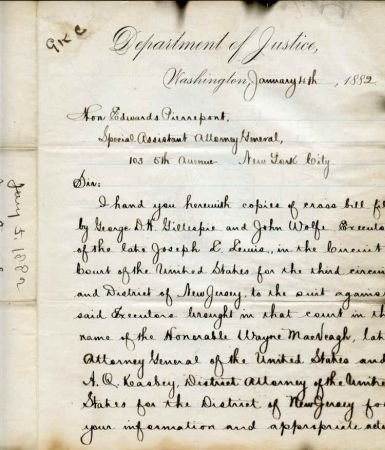 GKC
Department of Justice,
Washington, January 4th, 1882
Hon Edwards Pierrepont,
Special Assistant Attorney General,
103 5th Avenue New York City.
Sir:
I hand you herewith copies of cross bill fil
by George D.H. Gillespie and John Wolfe Executo
of the late Joseph L Lewis, in the Circuit
Court of the United States for the third circui
and District of New Jersey, to the suit agains
said Executors brought in that court in th
name of the Honorable Wayne MacVeagh, lat
Attorney General of the United States and
A. Q. Keasbey, District Attorney of the Unite
States for the District of New Jersey fo
your information and appropriate acti
Jany 5 1882